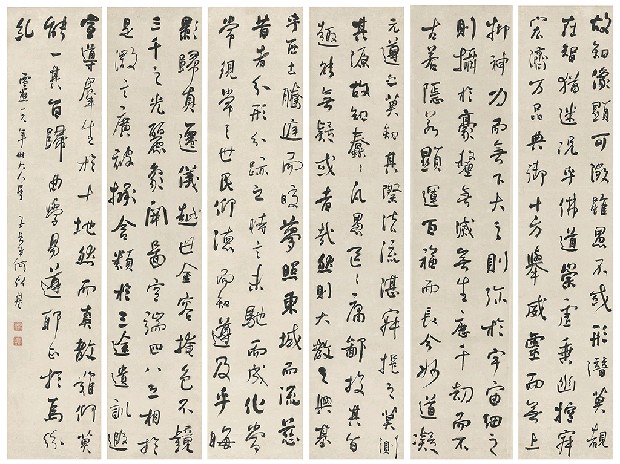 故知像顯可徵雖愚不惑形潛莫覩
在智猶迷況乎佛道崇虛乘幽控寂
宏濟萬品典御十方舉威靈而無上
抑神力而無下大之則彌於宇宙細之
則攝於豪釐無滅無生歷千劫而不
古若隱若顯運百福而長今妙道凝
元遵之莫知其際法流湛寂挹之莫測
其源故知蠢蠢凡愚區區庸鄙投其旨
趣能無疑惑者哉然則大教之興基
乎西土騰漢庭而皎夢照東域而流慈
昔者分形分跡之時言未馳而成化當
常現常之世民仰德而知遵及乎晦
影歸真遷儀越世金容掩色不鏡
三千之光麗象開圖空端四八之相於
是微言廣被拯含類於三途遺訓遐
宣導羣生於十地然而真教難仰莫
能一其旨歸曲學易遵邪正於焉紛
糺
年世大人屬 何紹基